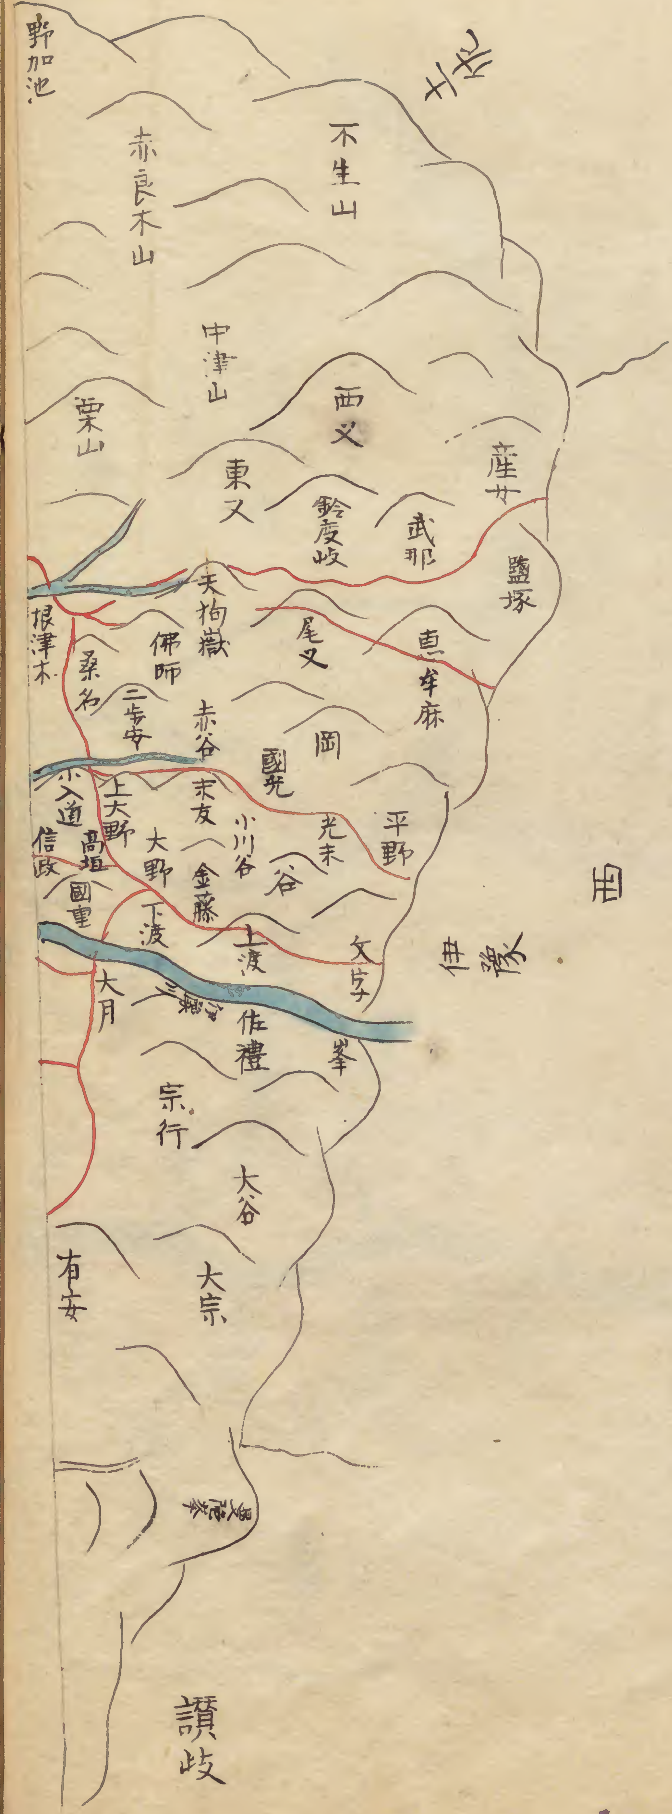 野加池
赤良木山
不生山
中津山
栗山
西又
東又
産女
鈴度岐
武那
鹽塚
天狗嶽
根津木
佛師
尾又
桑名
恵牟麻
二歩安
赤谷
岡
國光
小入道
上大野
末友
小川谷
光末
平野
信政
高垣
大野
金藤
谷
國重
下渡
上渡
文字
西
伊豫
大月
伊豫川
佐禮
峯
宗行
大谷
有安
大宗
曼陀峯
讃岐